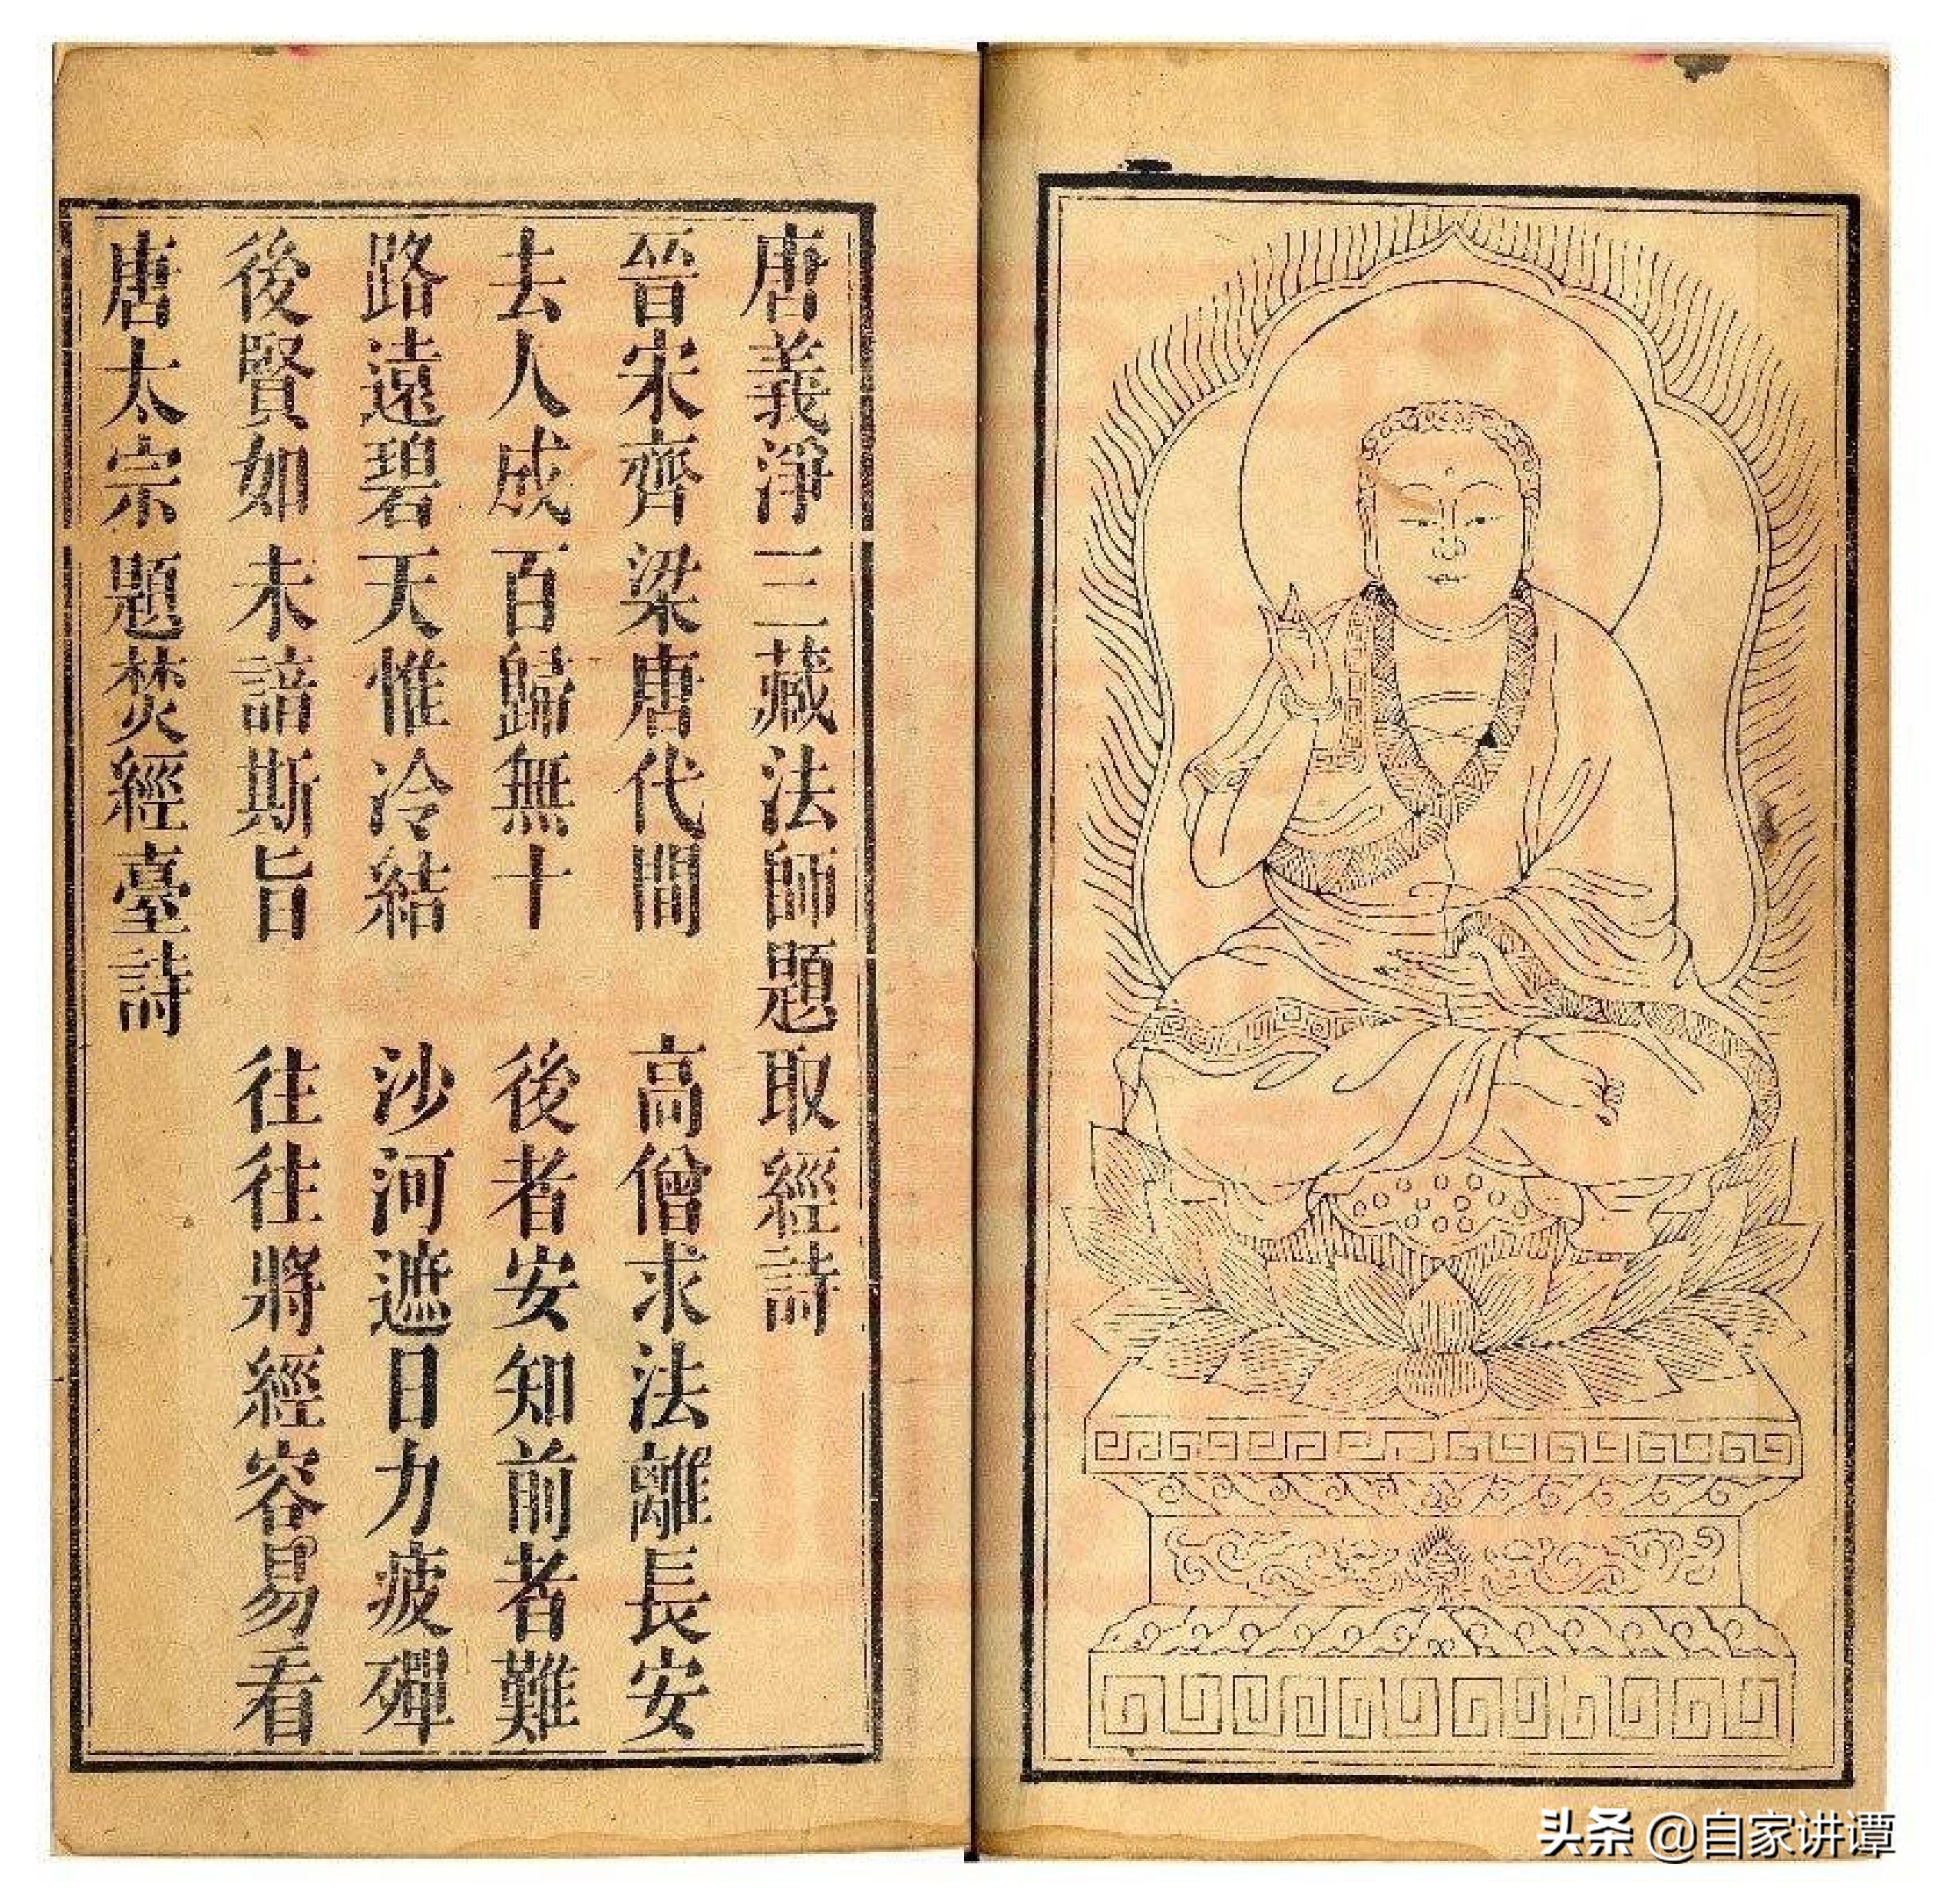 唐義淨三藏法師題取經詩
晉宋齊梁唐代間 高僧求法離長安
去人成百歸無十 後者安知前者難
路遠碧天惟冷結 沙河遮日力疲殫
後賢如未諳斯旨 往往將經容易看
唐太宗題焚經臺詩
头条 @自家讲谭